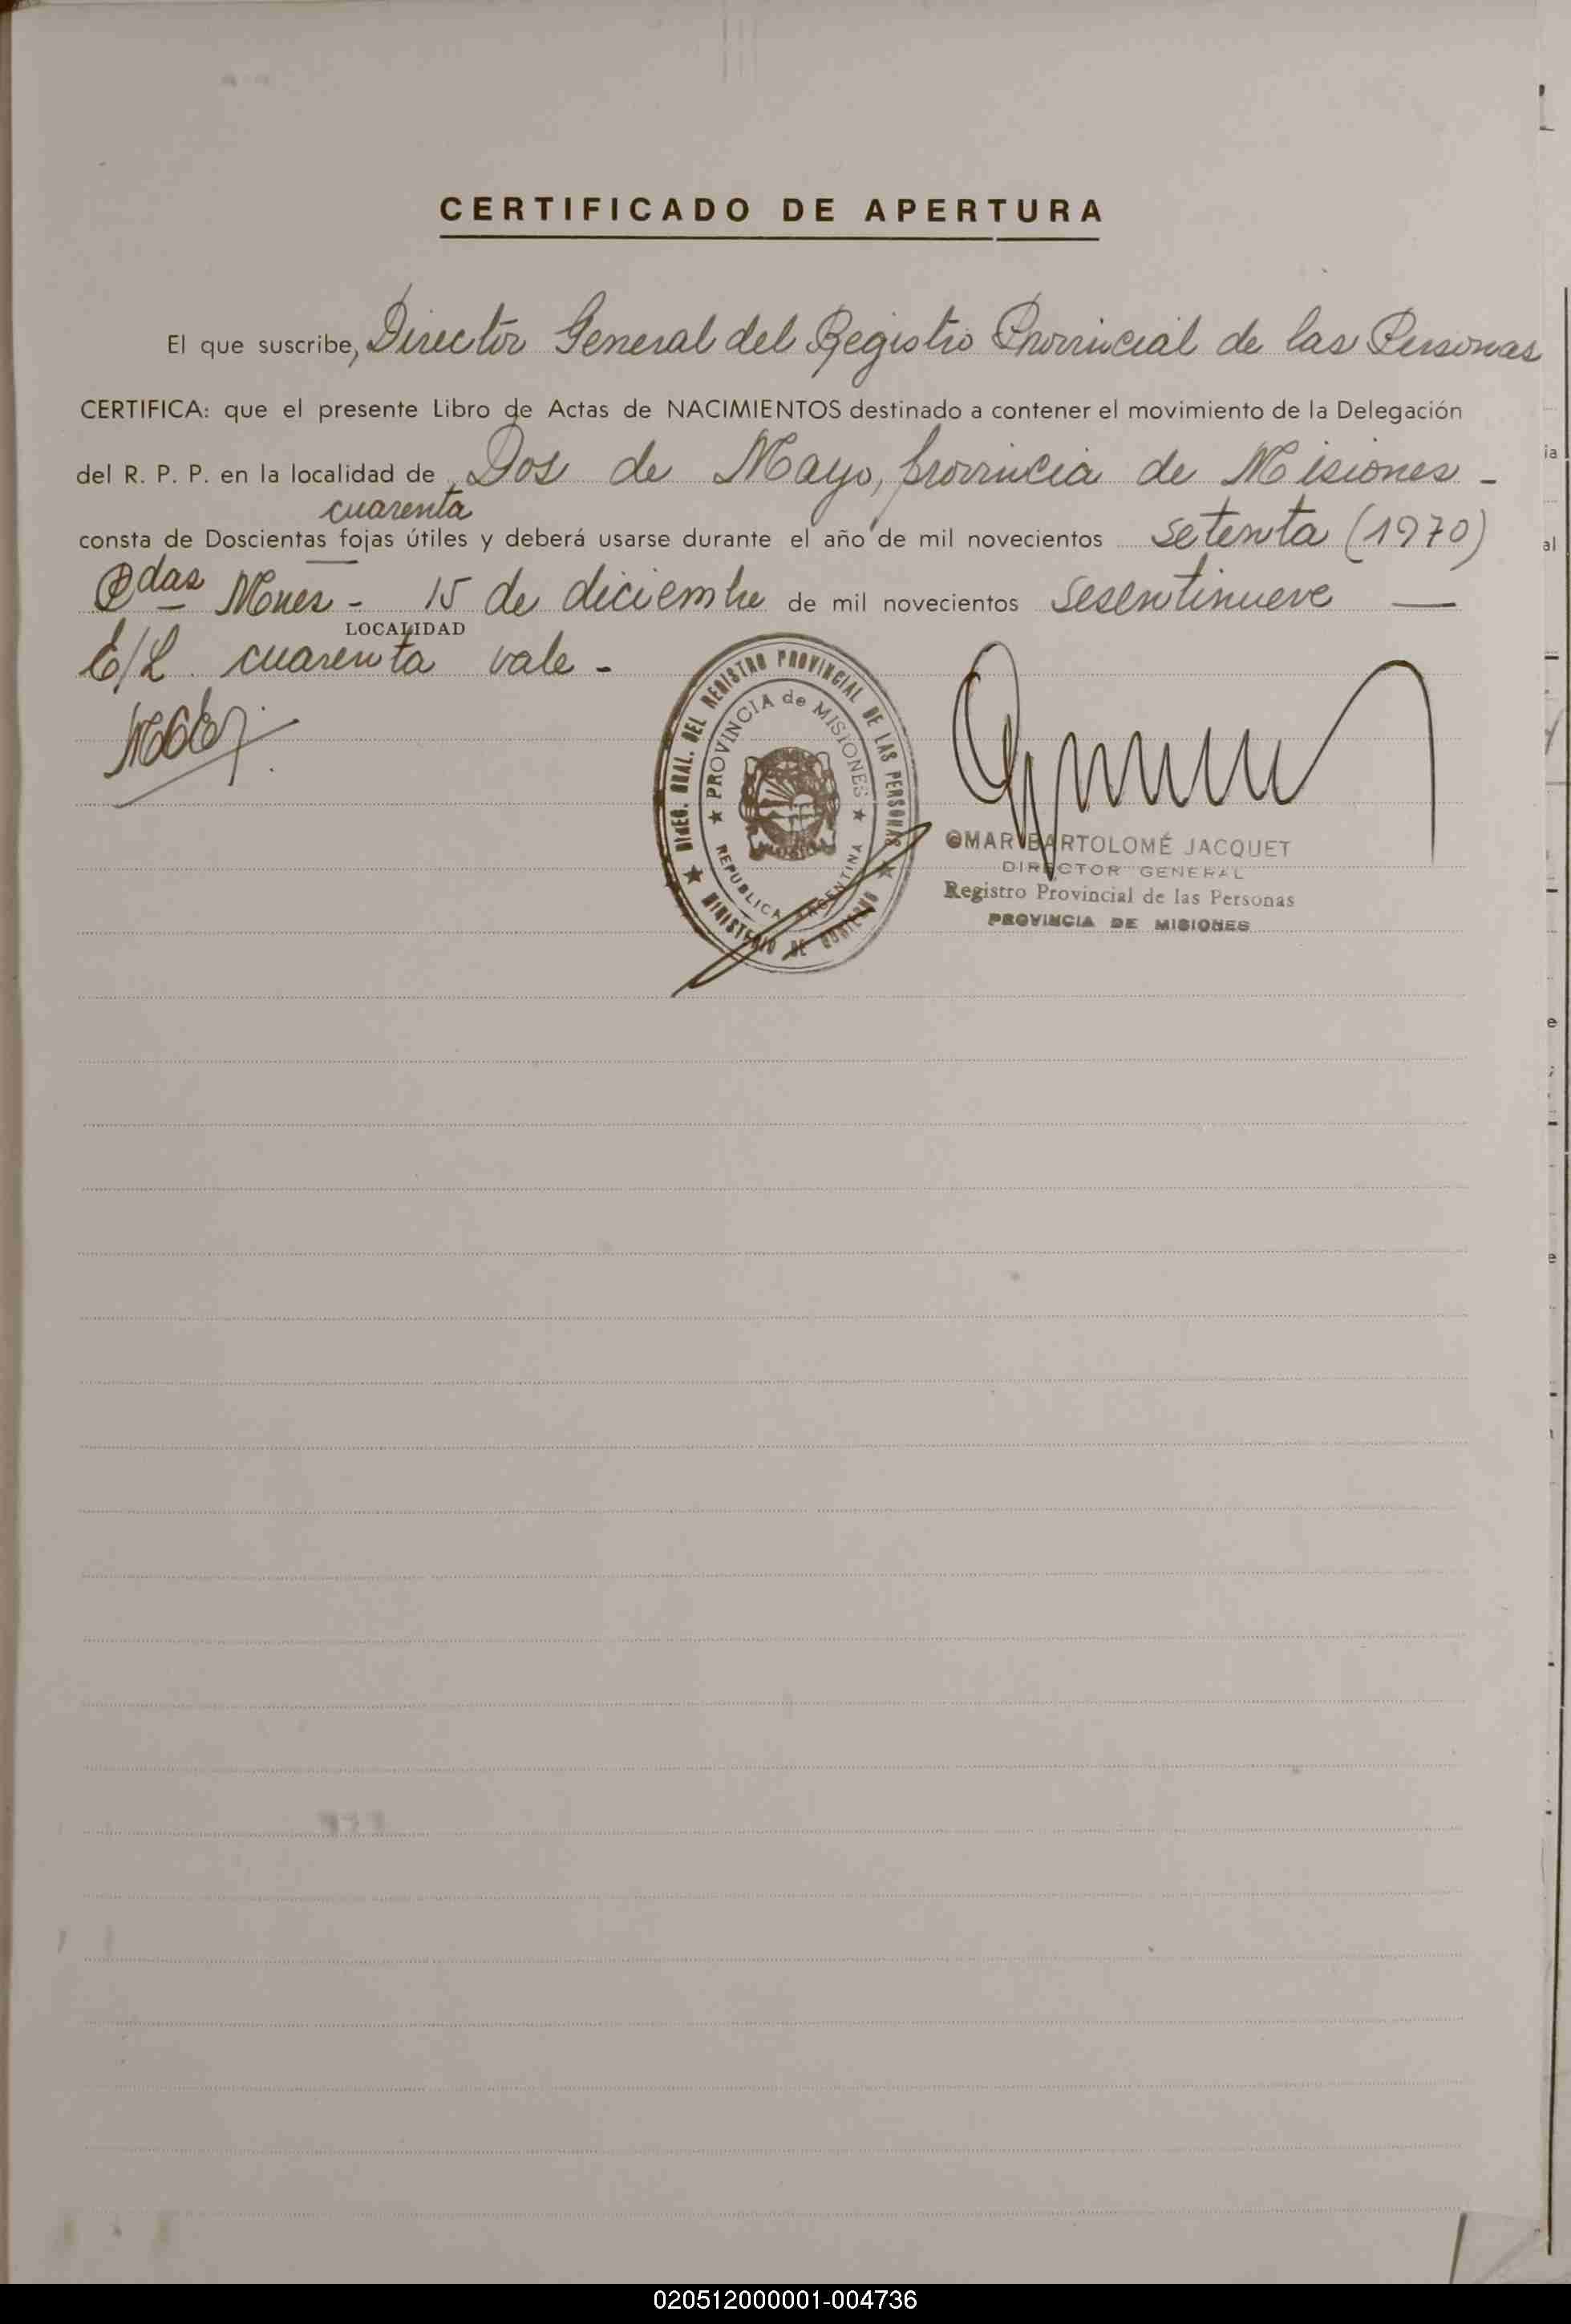 CERTIFICADO DE APERTURA
El que suscribe, Director General del Registro Provincial de las Personas
CERTIFICA: que el presente Libro de Actas de NACIMIENTOS destinado a contener el movimiento de la Delegación
del R. P. P. en la localidad de Dos de Mayo, provincia de Misiones -
cuarenta
consta de Doscientas fojas útiles y deberá usarse durante el año de mil novecientos setenta (1970)
Pdas Mnes - 15 de diciembre de mil novecientos sesentinueve —
LOCALIDAD
E/L cuarenta vale -
DIREC. GRAL. DEL REGISTRO PROVINCIAL DE LAS PERSONAS
★ PROVINCIA de MISIONES ★
REPUBLICA ARGENTINA
★ MINISTERIO DE GOBIERNO ★
OMAR BARTOLOMÉ JACQUET
DIRECTOR GENERAL
Registro Provincial de las Personas
PROVINCIA DE MISIONES
ia
al
e
e
020512000001-004736